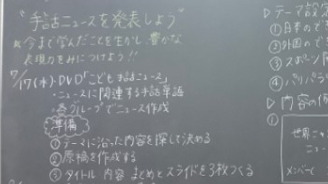 "手話ニュースを発表しよう"
※今まで学んだことを生かし、豊かな
表現力をみにつけよう!!
7/17(水)・DVD「こども手話ニュース」
・ニュースに関連する手話単語
・各グループでニュース作成
準備
①テーマに沿った内容を探して決める
②原稿を作成する
③タイトル 内容 まとめとスライドを3枚つくる
▷テーマ設定
①日本の
②外国の
③ス
④バリバラ
▷内容の
①
世界こ
メンバー